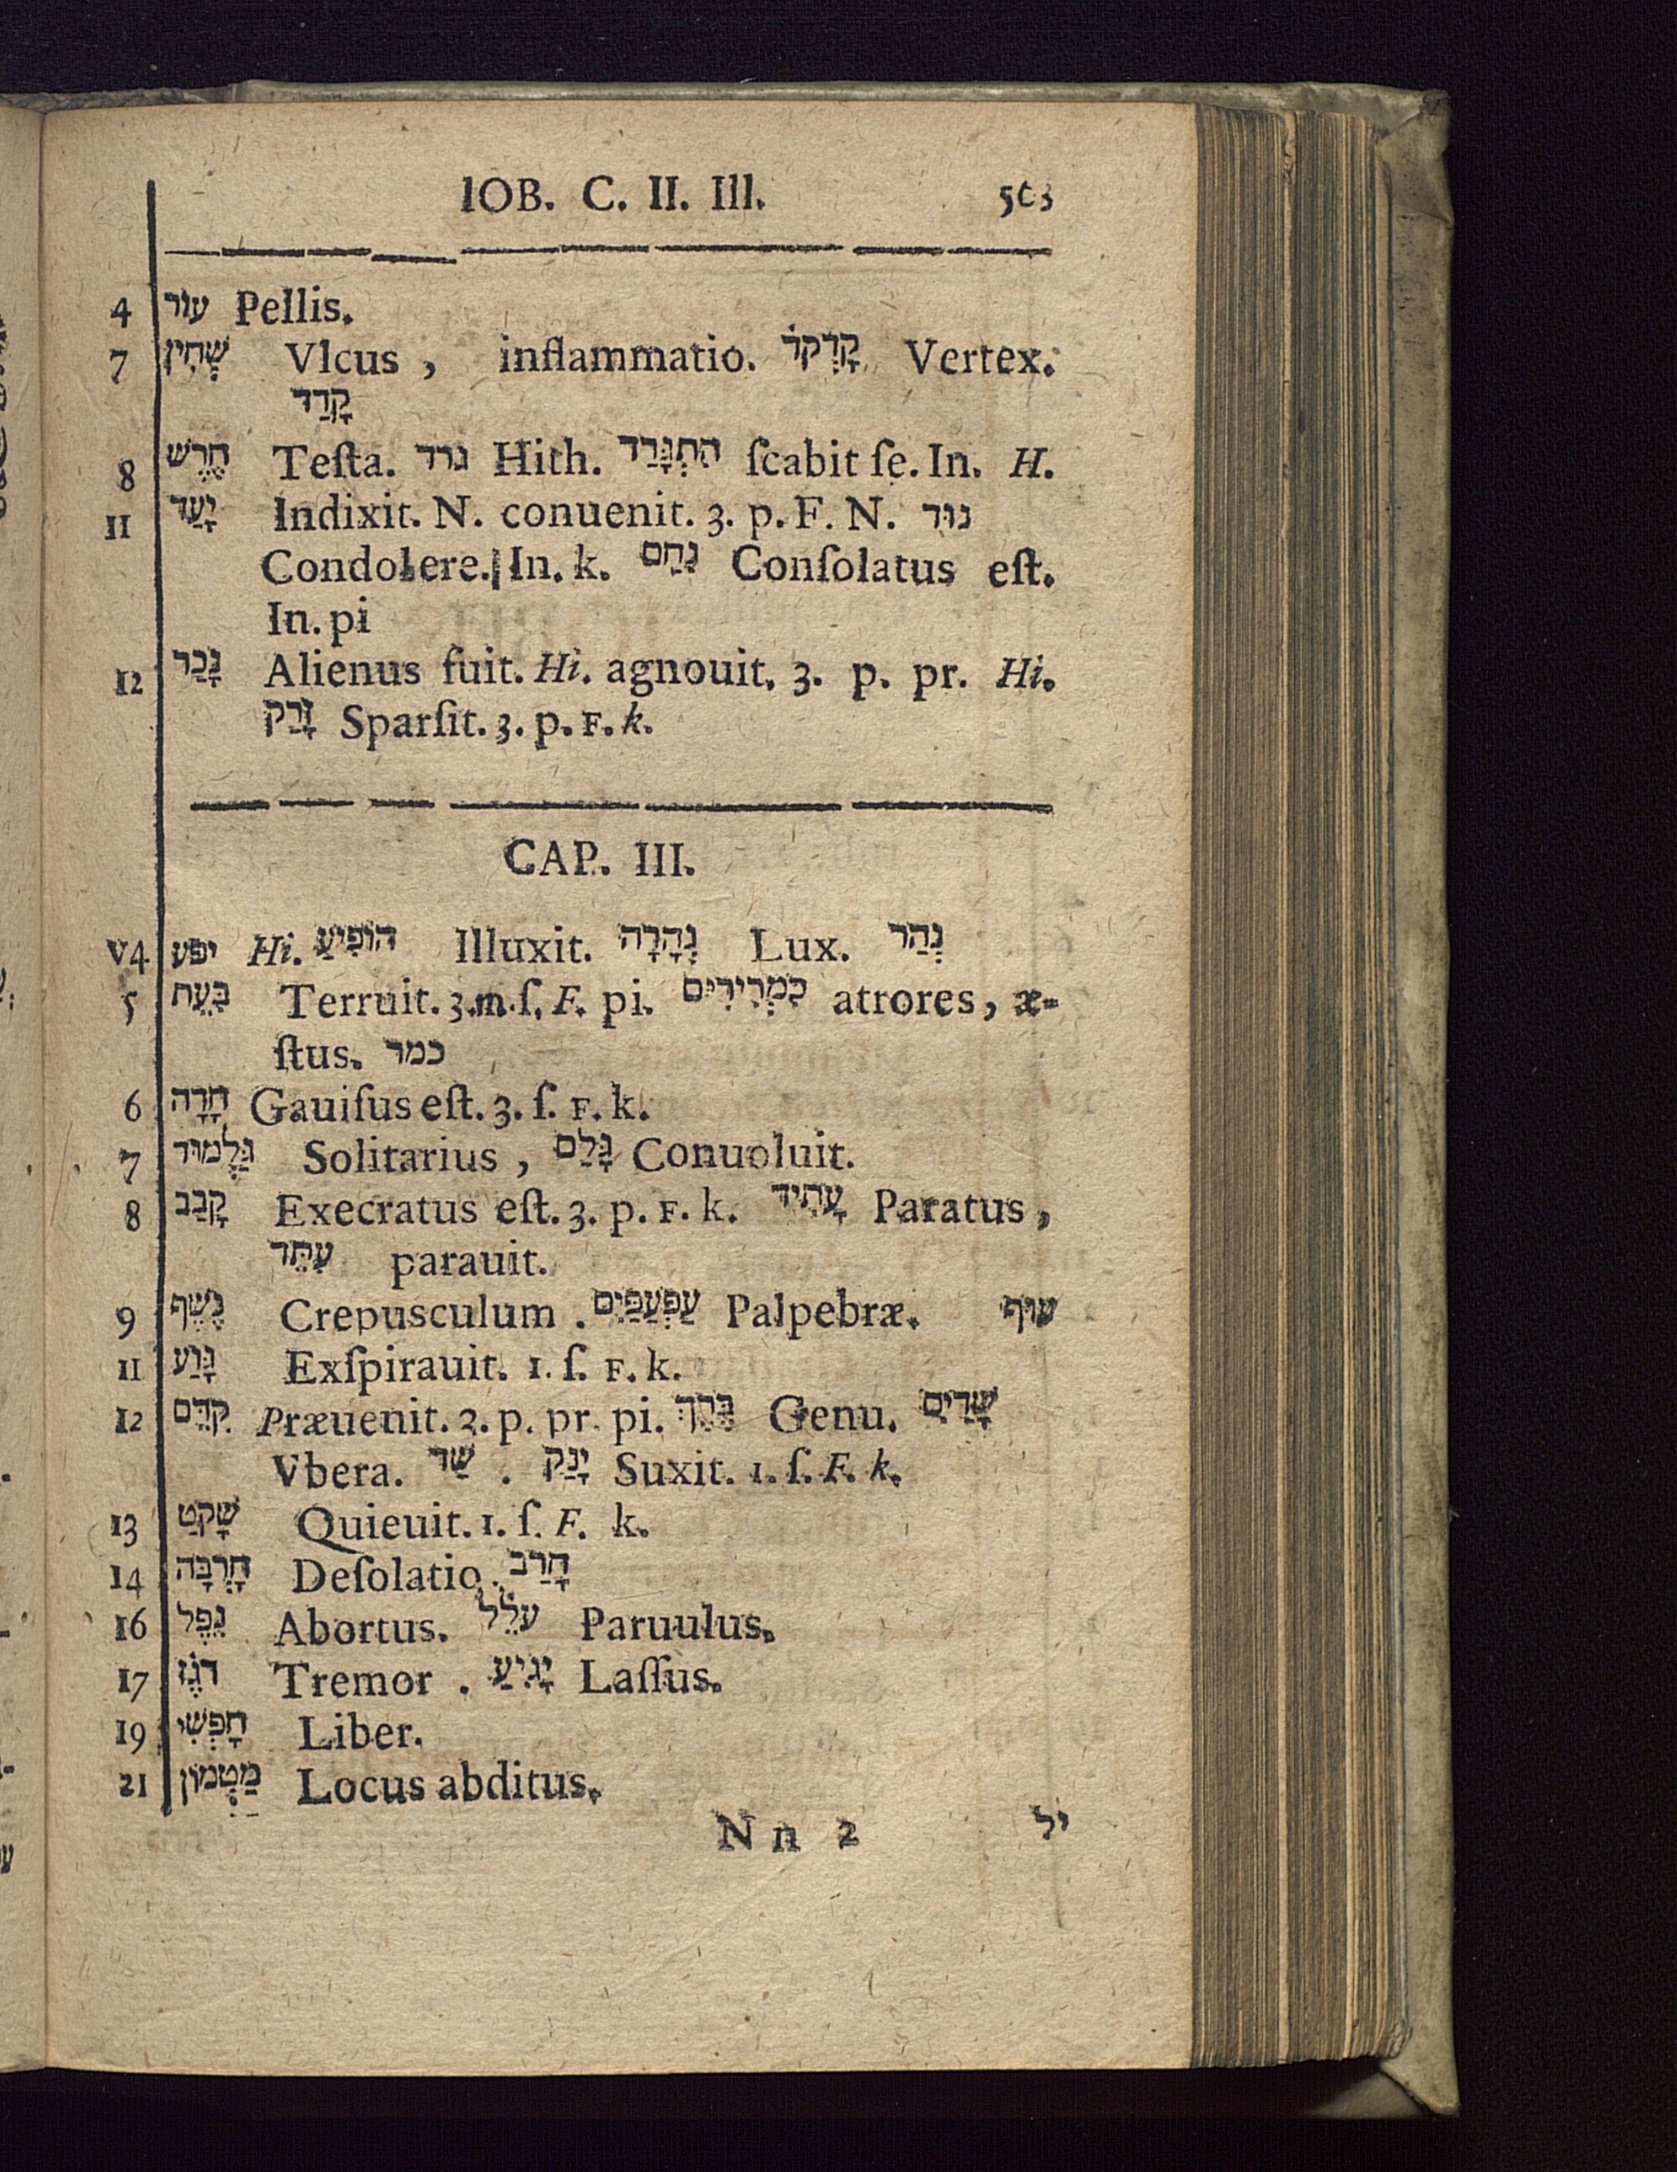 IOB. C. II. III. 503
4 עור Pellis.
7 שְׁחִין Vlcus, inflammatio. קָדְקֹד Vertex.
קָדַד
8 חֶרֶשׁ Teſta. גרד Hith. הִתְגָּרַד ſcabit ſe. In. H.
11 יָעַד Indixit. N. conuenit. 3. p. F. N. נוּד
Condolere. In. k. נָחַם Conſolatus eſt.
In. pi
12 נָכַר Alienus fuit. Hi. agnouit. 3. p. pr. Hi.
זָרַק Sparſit. 3. p. F. k.
CAP. III.
V4 יפע Hi. הוֹפִיעַ Illuxit. נְהָרָה Lux. נְהַר
5 בָּעַת Terruit. 3. m. ſ. F. pi. כַּמְרִירִים atrores, æ-
ſtus. כמר
6 חָדָה Gauiſus eſt. 3. ſ. F. k.
7 גַּלְמוּד Solitarius, גָּלַם Conuoluit.
8 קָבַב Execratus eſt. 3. p. F. k. עָתִיד Paratus,
עִתֵּד parauit.
9 נֶשֶׁף Crepusculum. עַפְעַפַּיִם Palpebræ. עוּף
11 גָּוַע Exſpirauit. 1. ſ. F. k.
12 קִדֵּם Præuenit. 3. p. pr. pi. בֶּרֶךְ Genu. שָׁדַיִם
Vbera. שַׁד . יָנַק Suxit. 1. ſ. F. k.
13 שָׁקַט Quieuit. 1. ſ. F. k.
14 חָרְבָּה Deſolatio. חָרַב
16 נֵפֶל Abortus. עֹלֵל Paruulus.
17 רֹגֶז Tremor. יָגִיעַ Laſſus.
19 חָפְשִׁי Liber.
21 מַטְמוֹן Locus abditus.
N n 2 יל